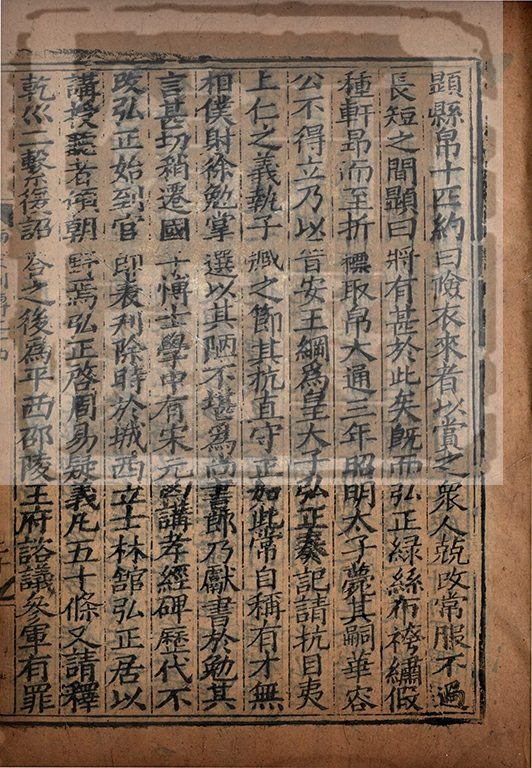 顯縣帛十匹約曰險衣來者以賞之衆人競改常服不過
長短之間顯曰將有甚於此矣旣而弘正緑絲布袴繡假
種軒昂而至折標取帛大通三年昭明太子薨其嗣華容
公不得立乃以晉安王綱爲皇大子弘正奏記請抗目夷
上仁之義執子臧之節其抗直守正如此常自稱有才無
相僕射徐勉掌選以其陋不堪爲尚書郎乃獻書於勉其
言甚切稍遷國子博士學中有宋元凶講孝經碑歷代不
改弘正始到官即表刊除時於城西立士林館弘正居以
講授聽者傾朝野焉弘正啓周易疑義凡五十條又請釋
乾巛二繫復詔答之後爲平西邵陵王府諮議參軍有罪